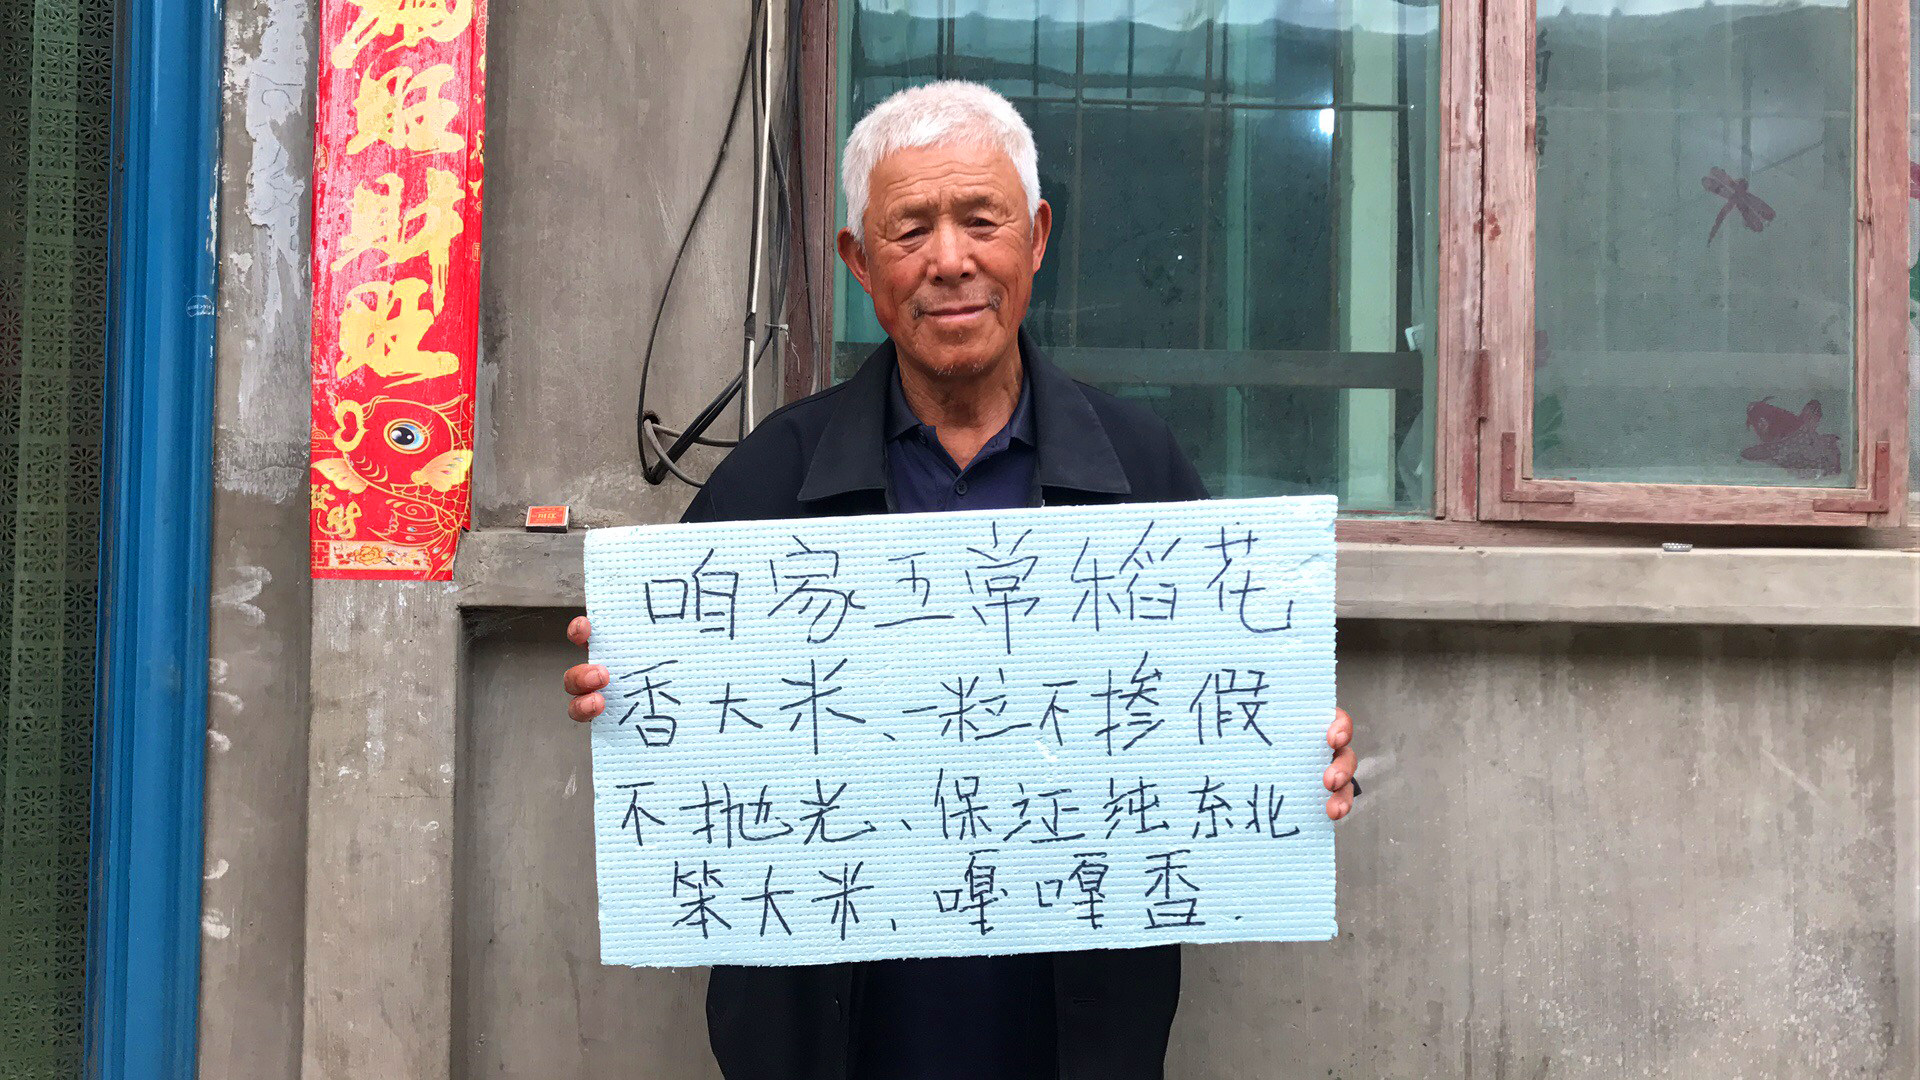 旺财旺
咱家五常稻花
香大米、一粒不掺假
不抛光、保证纯东北
笨大米、嘎嘎香.